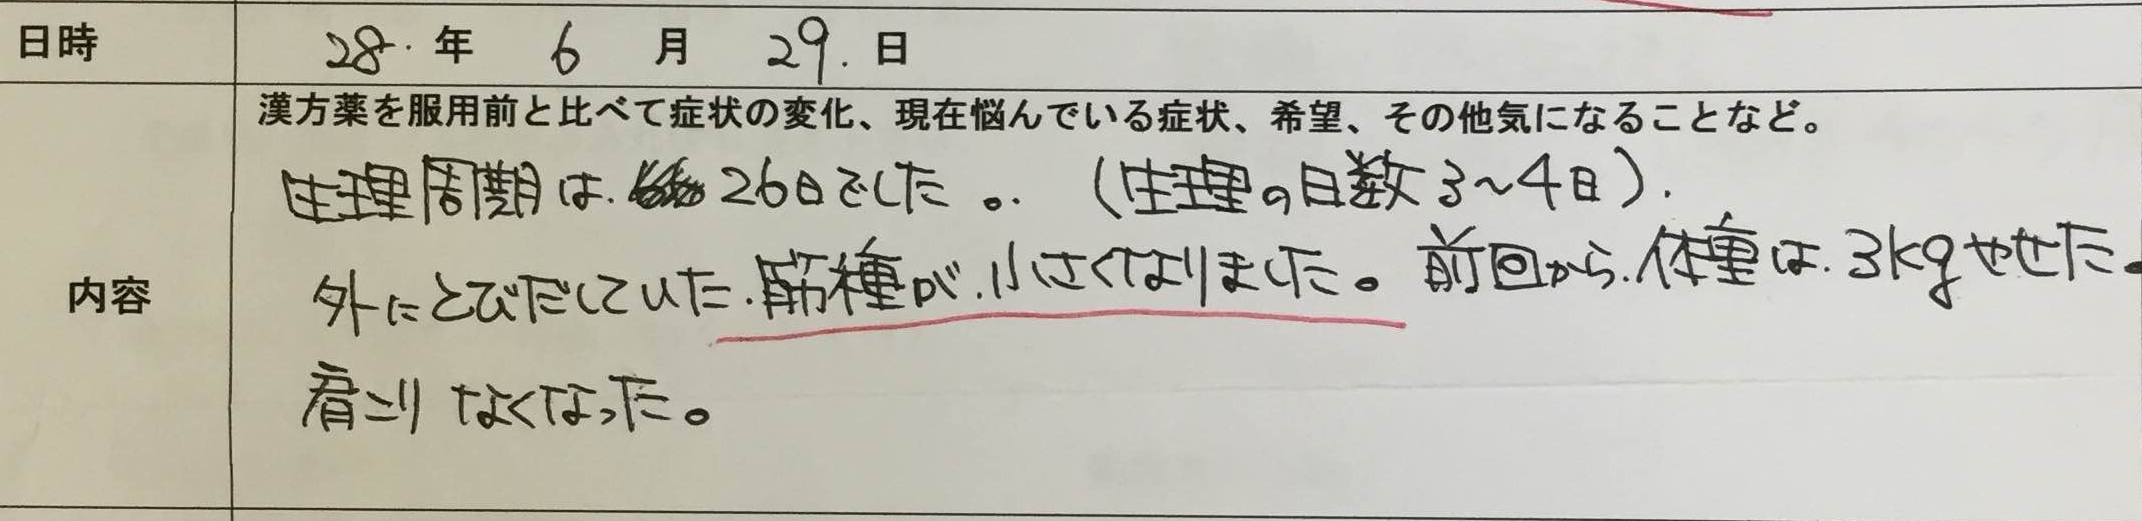 日時 28.年 6 月 29.日
漢方薬を服用前と比べて症状の変化、現在悩んでいる症状、希望、その他気になることなど。
生理周期は.26日でした。.（生理の日数3～4日）.
内容
外にとびだしていた.筋種が.小さくなりました。前回から.体重は.3kgやせた。
肩こりなくなった。